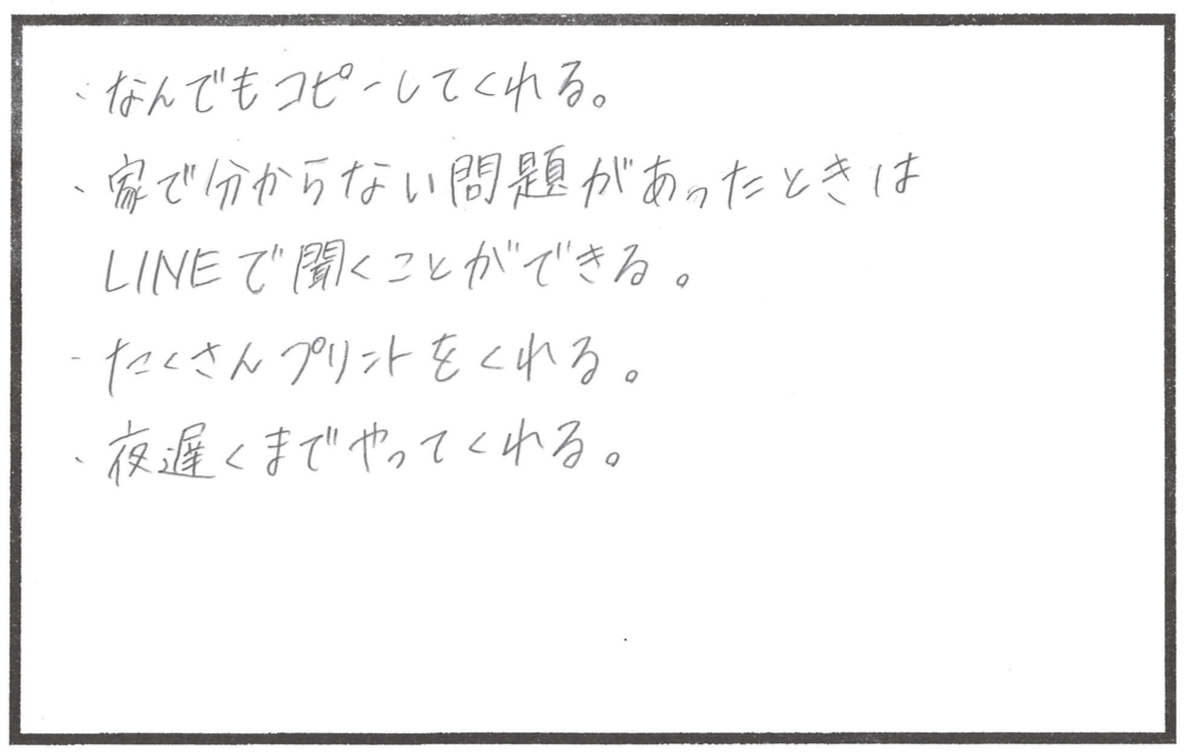 ・なんでもコピーしてくれる。
・家で分からない問題があったときは
LINEで聞くことができる。
・たくさんプリントをくれる。
・夜遅くまでやってくれる。